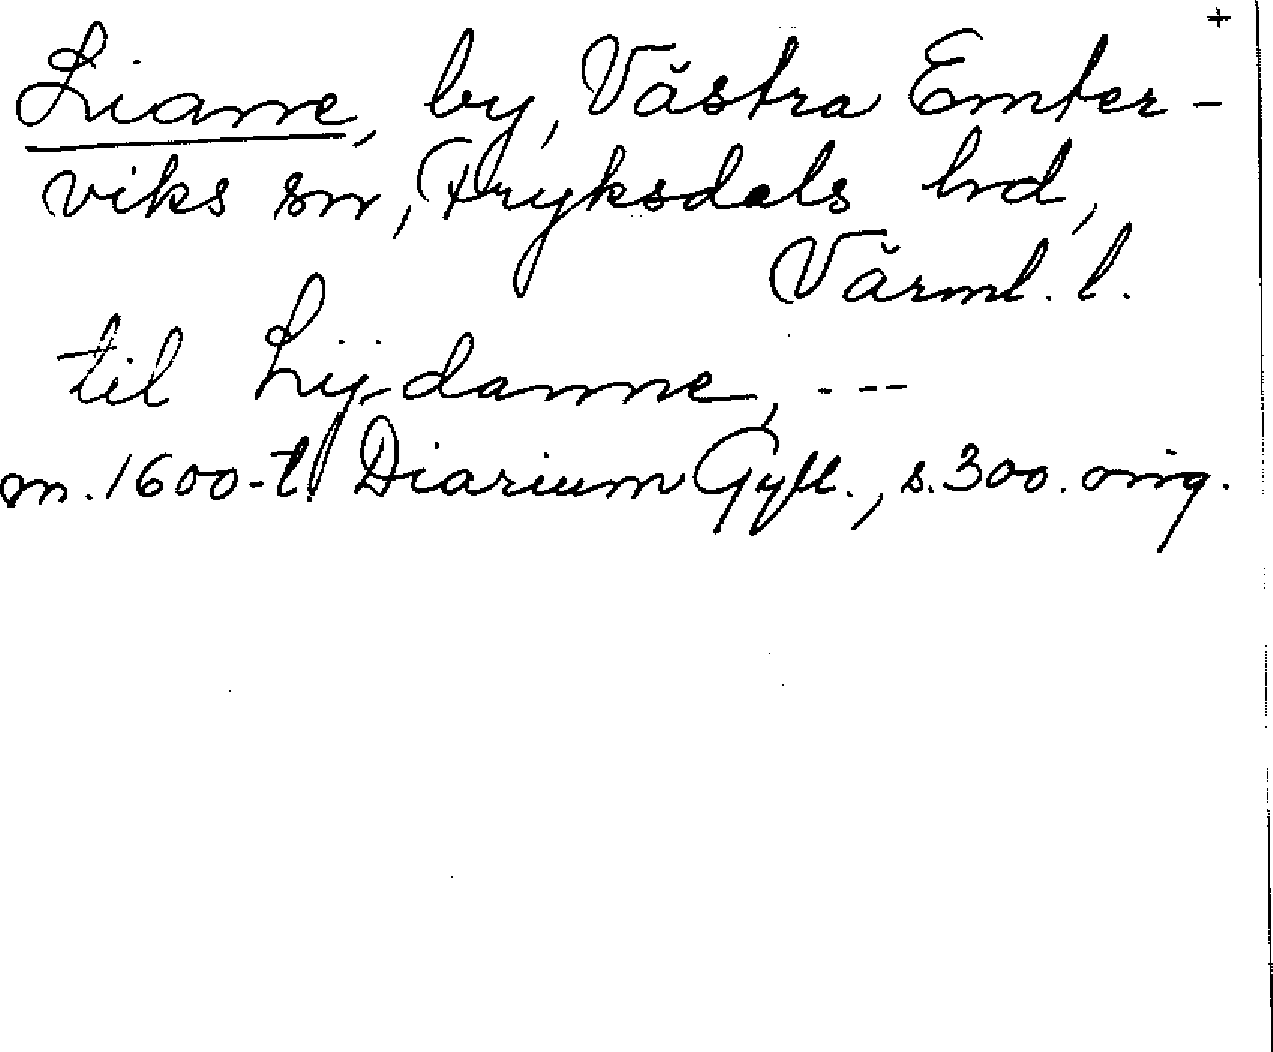 +
Lianne, by, Västra Emter-
viks sn, Fryksdals hd,
Värml. l.
til Lijdanne, ---
m. 1600-t. Diarium Gyll., s. 300. orig.